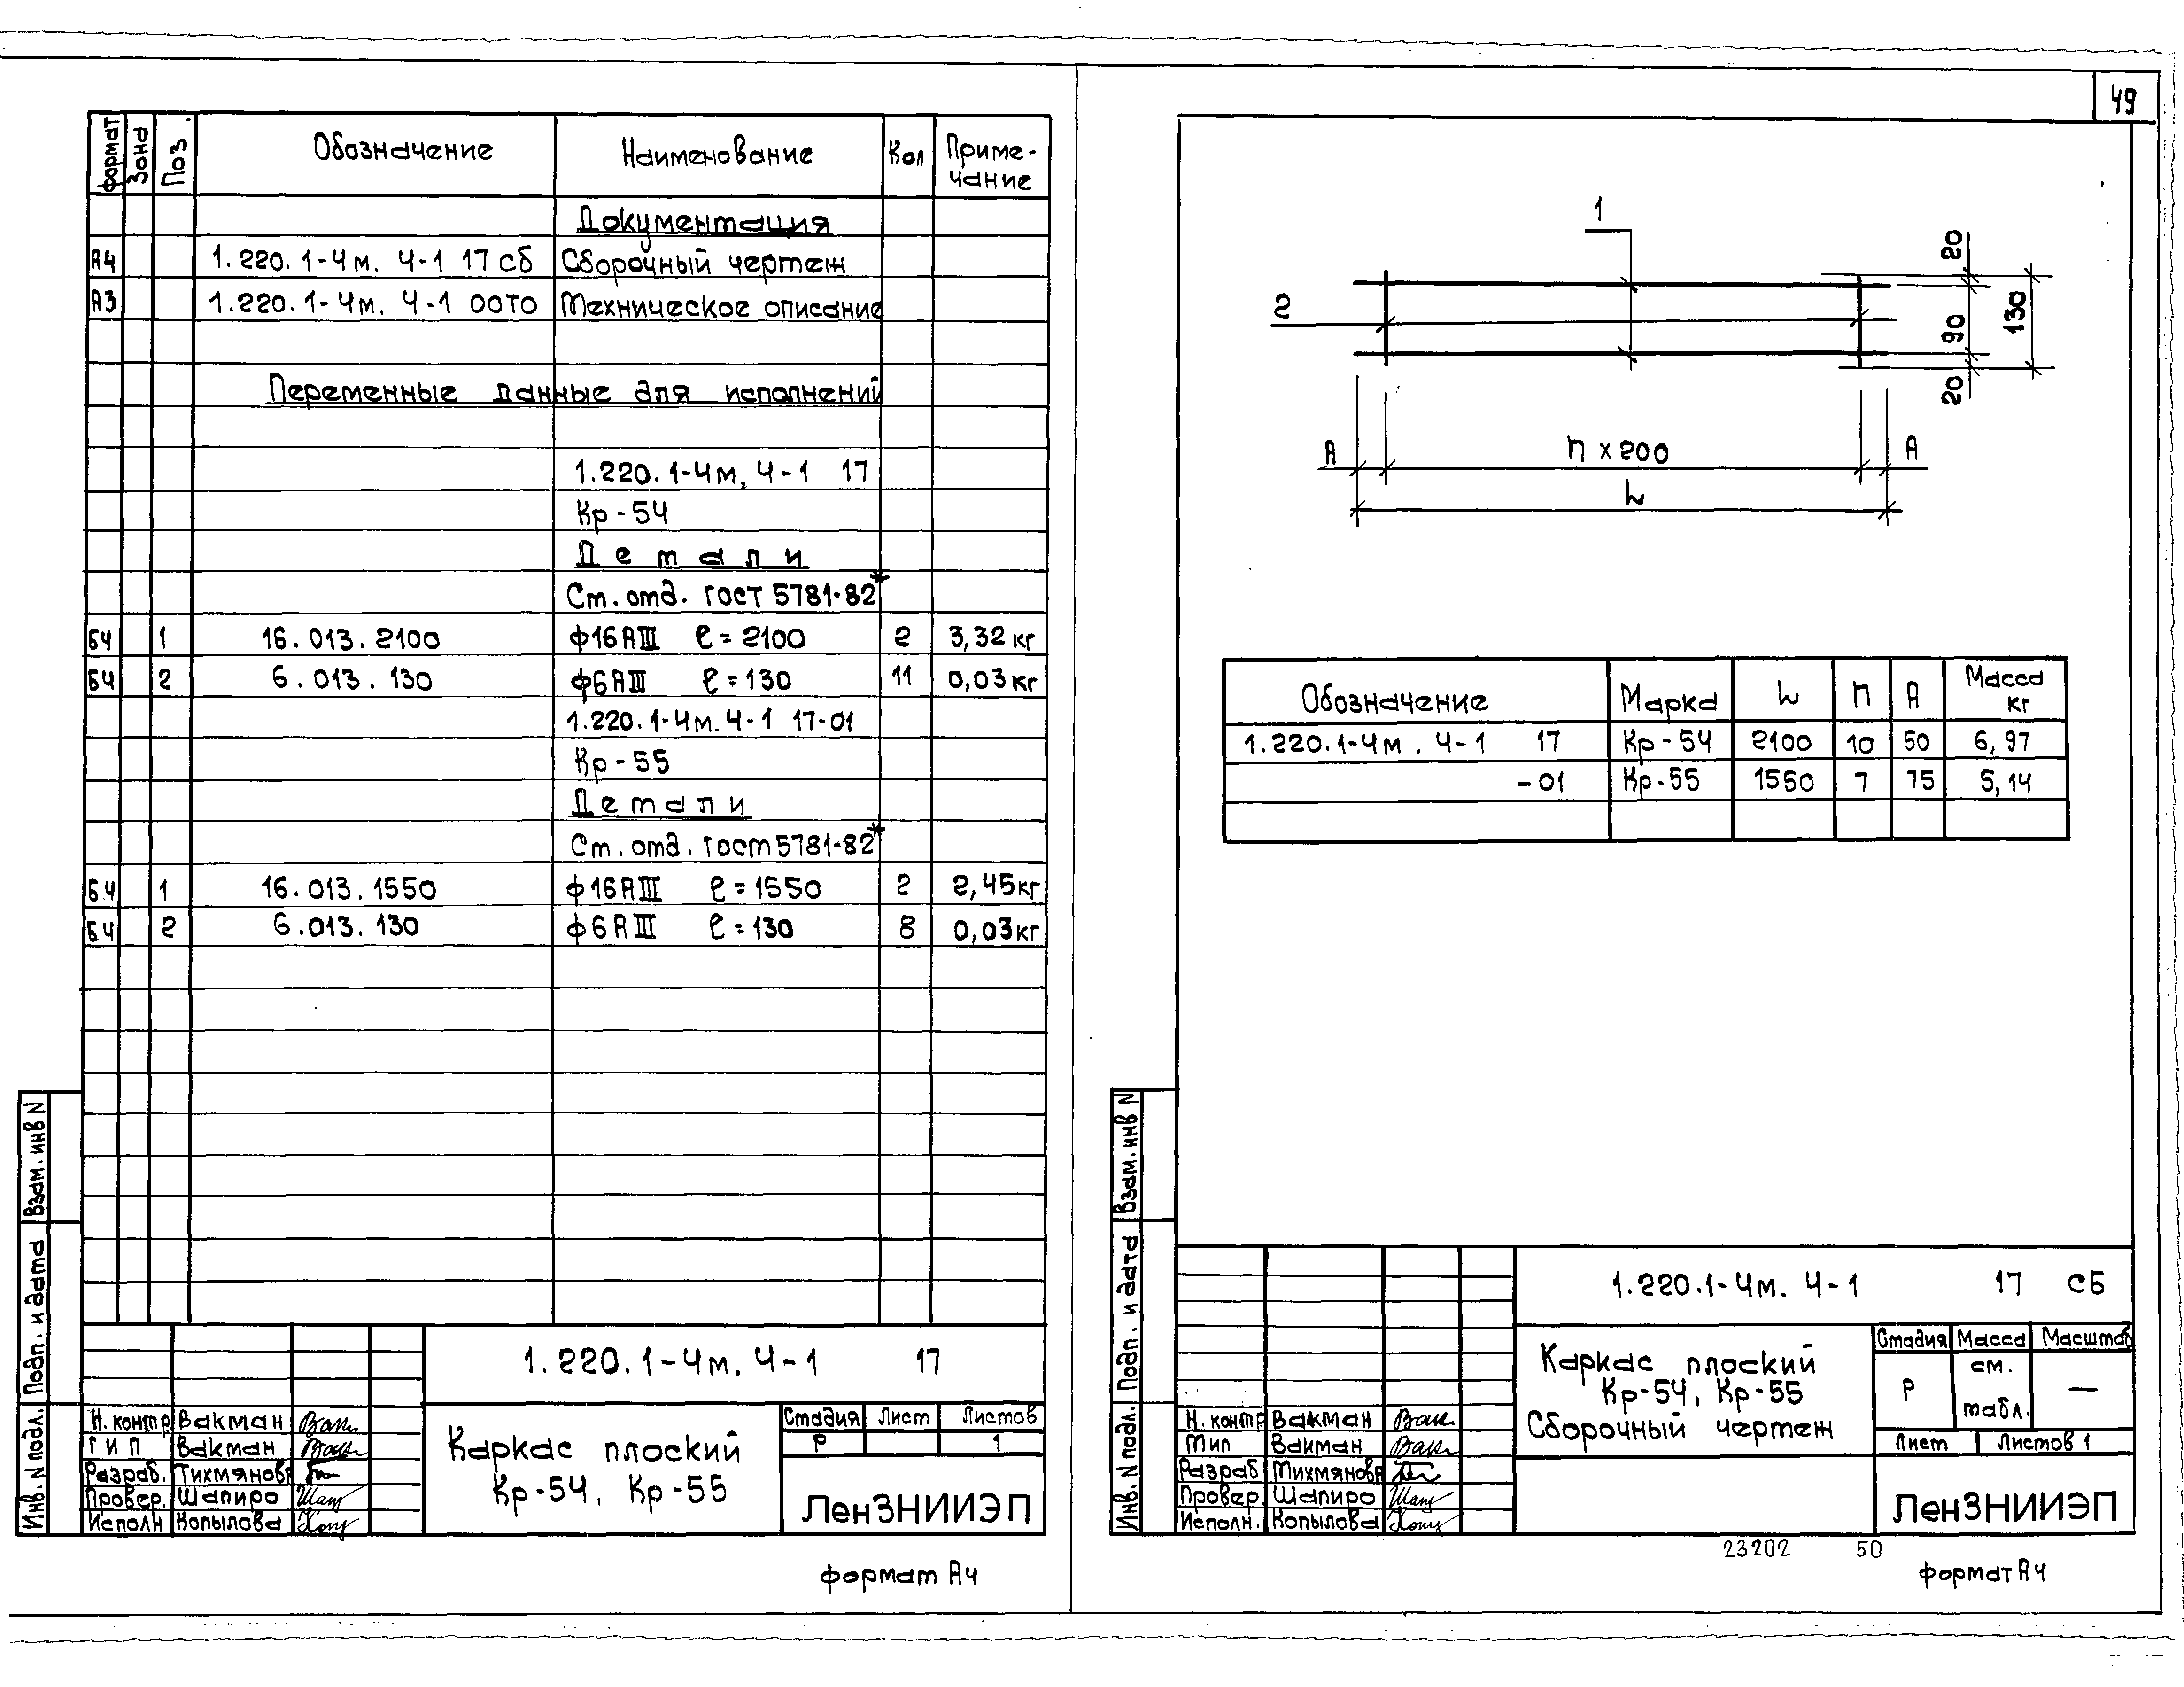 формат Зона Поз. Обозначение Наименование Кол Приме-чание
Документация
А4 1.220.1-4м. 4-1 17 сб Сборочный чертеж
А3 1.220.1-4м. 4-1 00ТО Техническое описание
Переменные данные для исполнений
1.220.1-4м, 4-1 17
Кр-54
Детали
Ст. отд. ГОСТ 5781-82*
БЧ 1 16.013.2100 ф16АIII ℓ=2100 2 3,32 кг
БЧ 2 6.013.130 ф6АIII ℓ=130 11 0,03 кг
1.220.1-4м. 4-1 17-01
Кр-55
Детали
Ст. отд. ГОСТ 5781-82*
БЧ 1 16.013.1550 ф16АIII ℓ=1550 2 2,45 кг
БЧ 2 6.013.130 ф6АIII ℓ=130 8 0,03 кг
Взам. инв N
Подп. и дата
Инв. N подл.
1.220.1-4м. 4-1 17
Н. контр Вакман
ГИП Вакман
Разраб. Тихмянова
Провер. Шапиро
Исполн Копылова
Каркас плоский
Кр-54, Кр-55
Стадия Лист Листов
Р 1
ЛенЗНИИЭП
формат А4
49
1
2
20
90
20
130
А n x 200 А
L
Обозначение Марка L n А Масса кг
1.220.1-4м. 4-1 17 Кр-54 2100 10 50 6,97
-01 Кр-55 1550 7 75 5,14
Взам. инв N
Подп. и дата
Инв. N подл.
1.220.1-4м. 4-1 17 СБ
Н. контр Вакман
Гип Вакман
Разраб Тихмянова
Провер. Шапиро
Исполн. Копылова
Каркас плоский
Кр-54, Кр-55
Сборочный чертеж
Стадия Масса Масштаб
Р см. табл. —
Лист Листов 1
ЛенЗНИИЭП
23202 50
формат А4